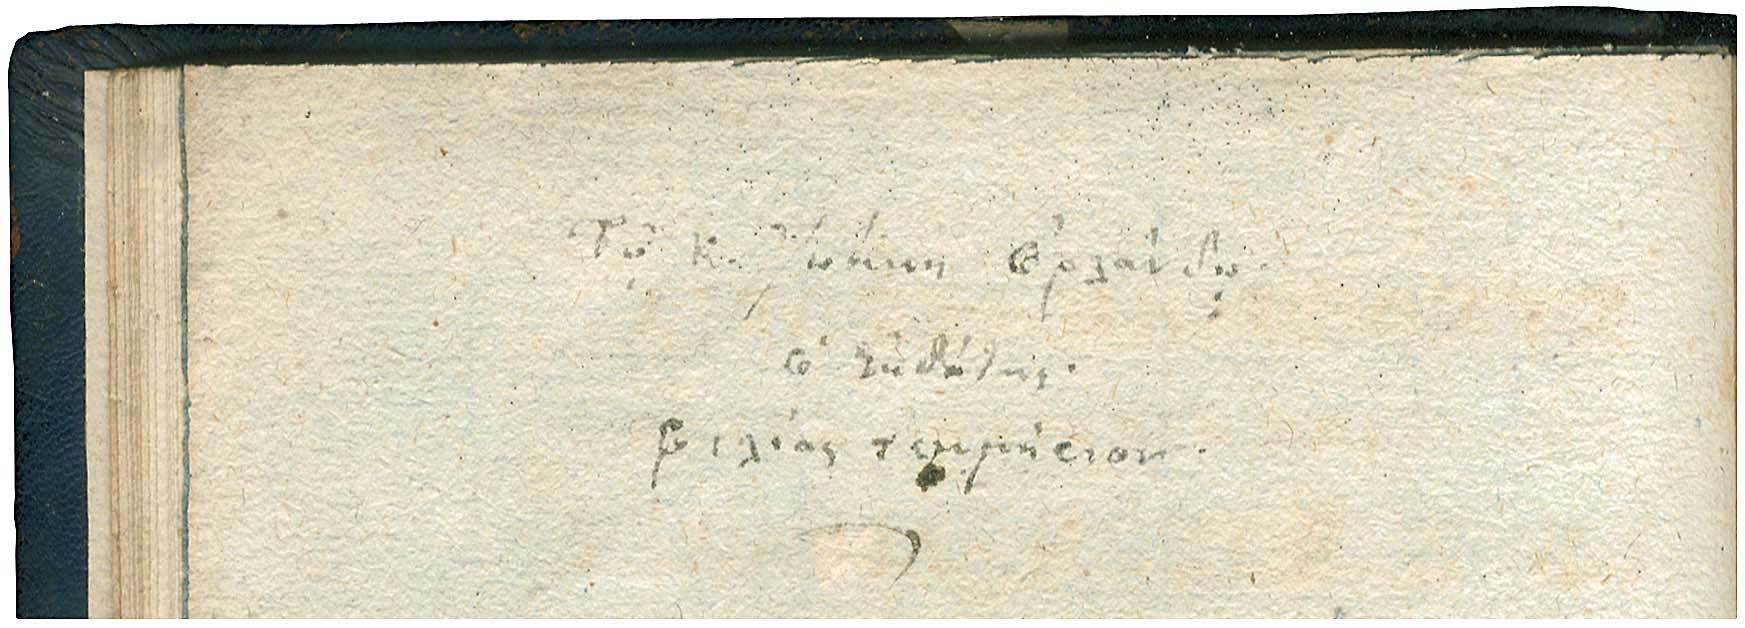 Τῷ κ. Ἰωάννῃ Ὀρλάνδῳ.
ὁ ἐκδότης.
φιλίας τεκμήριον.